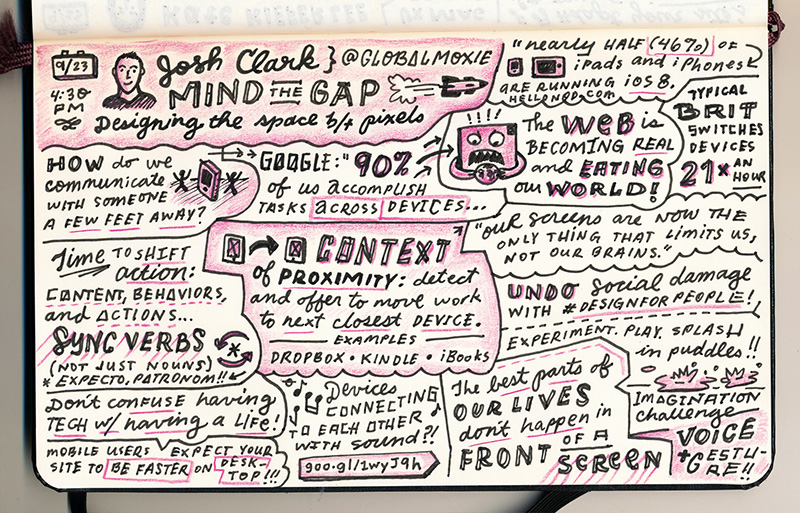 9/23
4:30
PM
Josh Clark } @GLOBALMOXIE
MIND THE GAP
Designing the space b/t pixels
"nearly HALF (46%) OF
iPads and iPhones
ARE RUNNING iOS 8.
TYPICAL
BRIT
SWITCHES
DEVICES
21x AN
HOUR
HOW do we
communicate
WITH SOMEONE
A FEW FEET AWAY?
GOOGLE: "90%
of us accomplish
TASKS ACROSS DEVICES...
The WEB is
BECOMING REAL
and EATING
our WORLD!
"OUR SCREENS ARE NOW THE
ONLY THING THAT LIMITS US,
NOT OUR BRAINS."
Time TO SHIFT
action:
CONTENT, BEHAVIORS,
and ACTIONS...
SYNC VERBS
(NOT JUST NOUNS) *
* EXPECTO, PATRONOM!!
CONTEXT
of PROXIMITY: detect
and offer to move work
to next closest DEVICE.
EXAMPLES
DROPBOX • KINDLE • iBooks
UNDO social damage
WITH #DESIGNFORPEOPLE!
EXPERIMENT. PLAY. SPLASH
in puddles!!
IMAGINATION
challenge
VOICE
+ GESTU-
RE!!
DON'T CONFUSE having
TECH w/ having a LIFE!
MOBILE USERS EXPECT YOUR
SITE TO BE FASTER ON DESK-
TOP!!!
Devices
CONNECTING
TO EACH OTHER
WITH sound?!
goo.gl/1wyJ9h
The best parts of
OUR LIVES
don't happen in
FRONT OF A
SCREEN